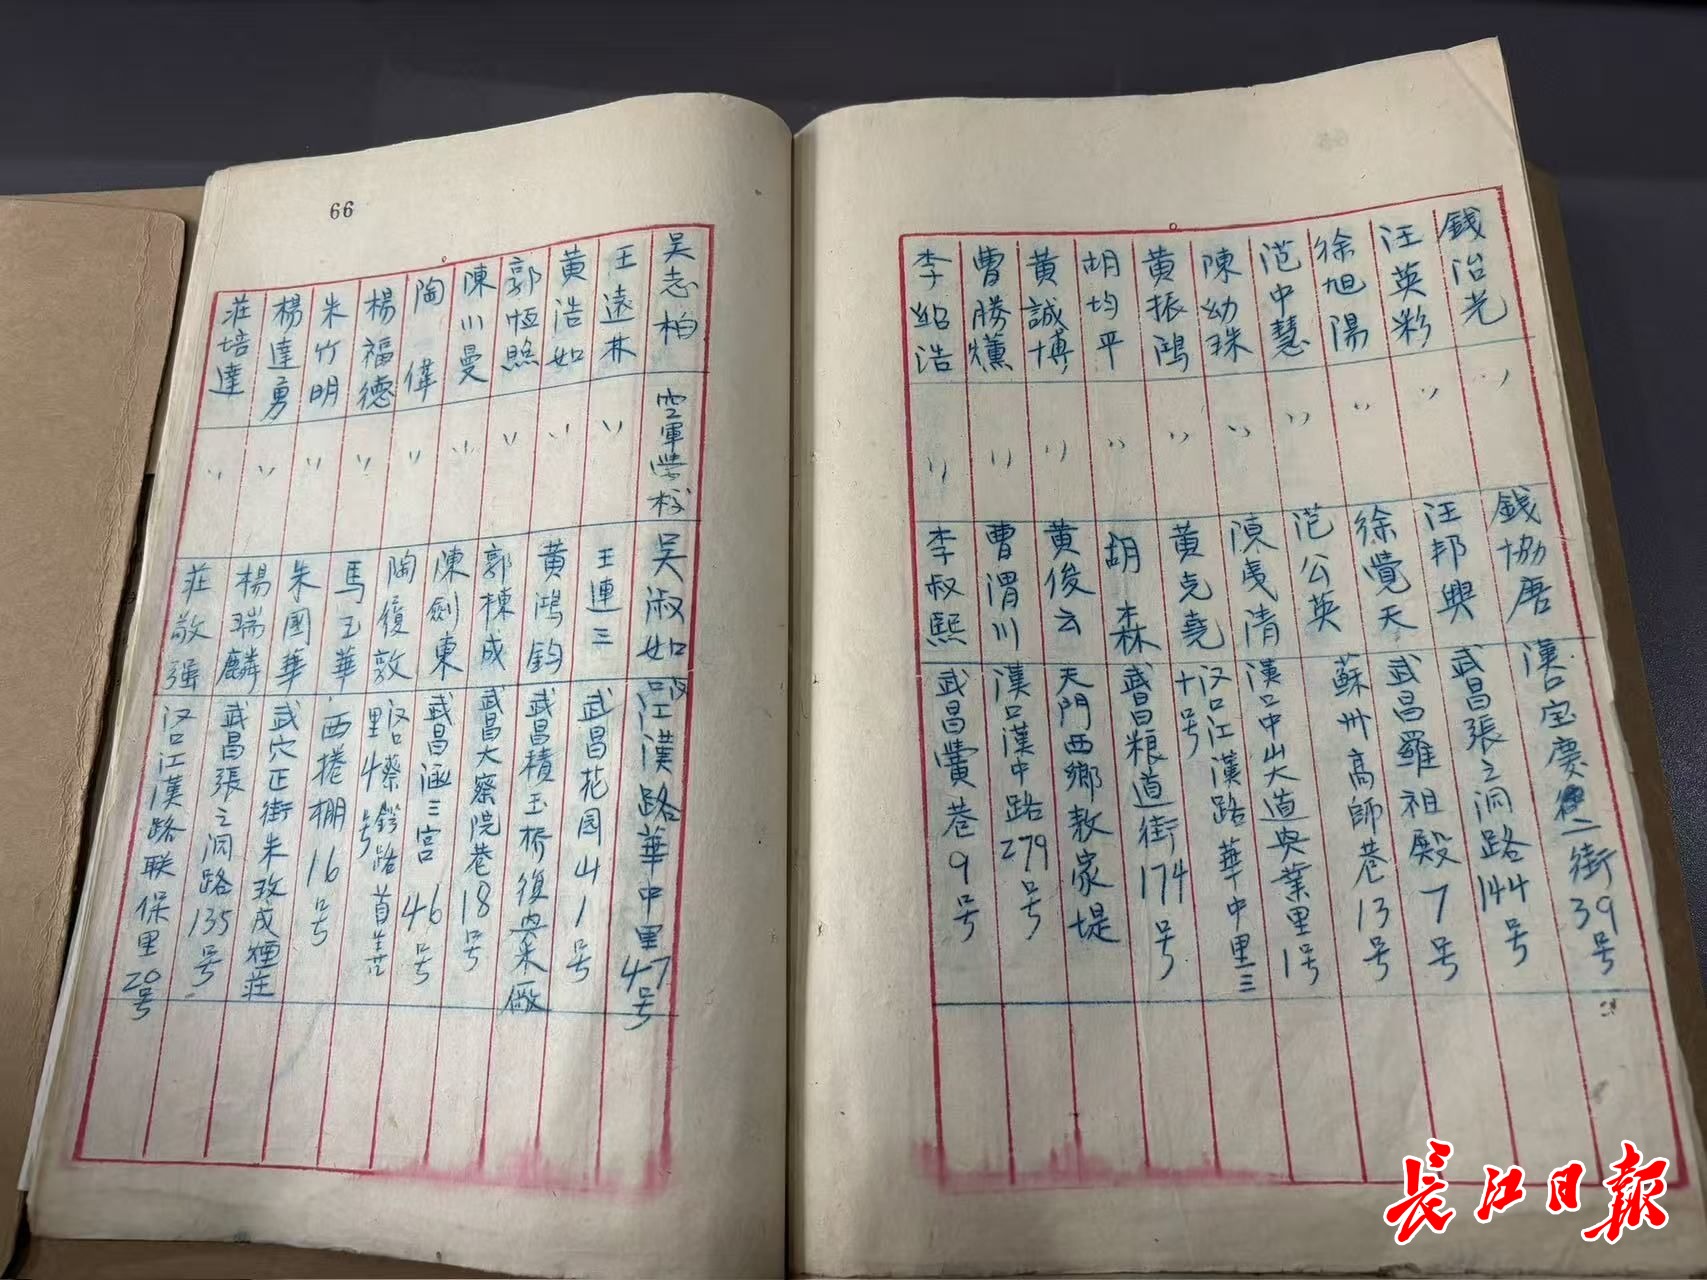 錢治光 〃 錢協唐 漢口宝慶一街39号
汪英彩 〃 汪邦興 武昌張之洞路144号
徐旭陽 〃 徐覺天 武昌羅祖殿7号
范中慧 〃 范公英 蘇州高師巷13号
陳幼珠 〃 陳夷清 漢口中山大道興業里1号
黄振鴻 〃 黄克堯 汉口江漢路華中里三十号
胡均平 〃 胡森 武昌粮道街174号
黄誠博 〃 黄俊云 天門西鄉敖家堤
曹勝懽 〃 曹渭川 漢口漢中路279号
李紹浩 〃 李叔熙 武昌黌巷9号
66
吴志柏 空軍學校 吴淑如 汉口江漢路華中里47号
王遠林 〃 王連三 武昌花园山1号
黄浩如 〃 黄鴻鈞 武昌積玉桥復興米廠
郭恒照 〃 郭棟成 武昌大察院巷18号
陳川曼 〃 陳劍東 武昌涵三宫46号
陶偉 〃 陶復敦 汉口蔡鍔路首善里4号
楊福德 〃 馬玉華 西捲棚16号
朱竹明 〃 朱國華 武穴正街朱玫成煙莊
楊達勇 〃 楊瑞麟 武昌張之洞路135号
莊培達 〃 莊敬强 汉口江漢路联保里20号
长江日报